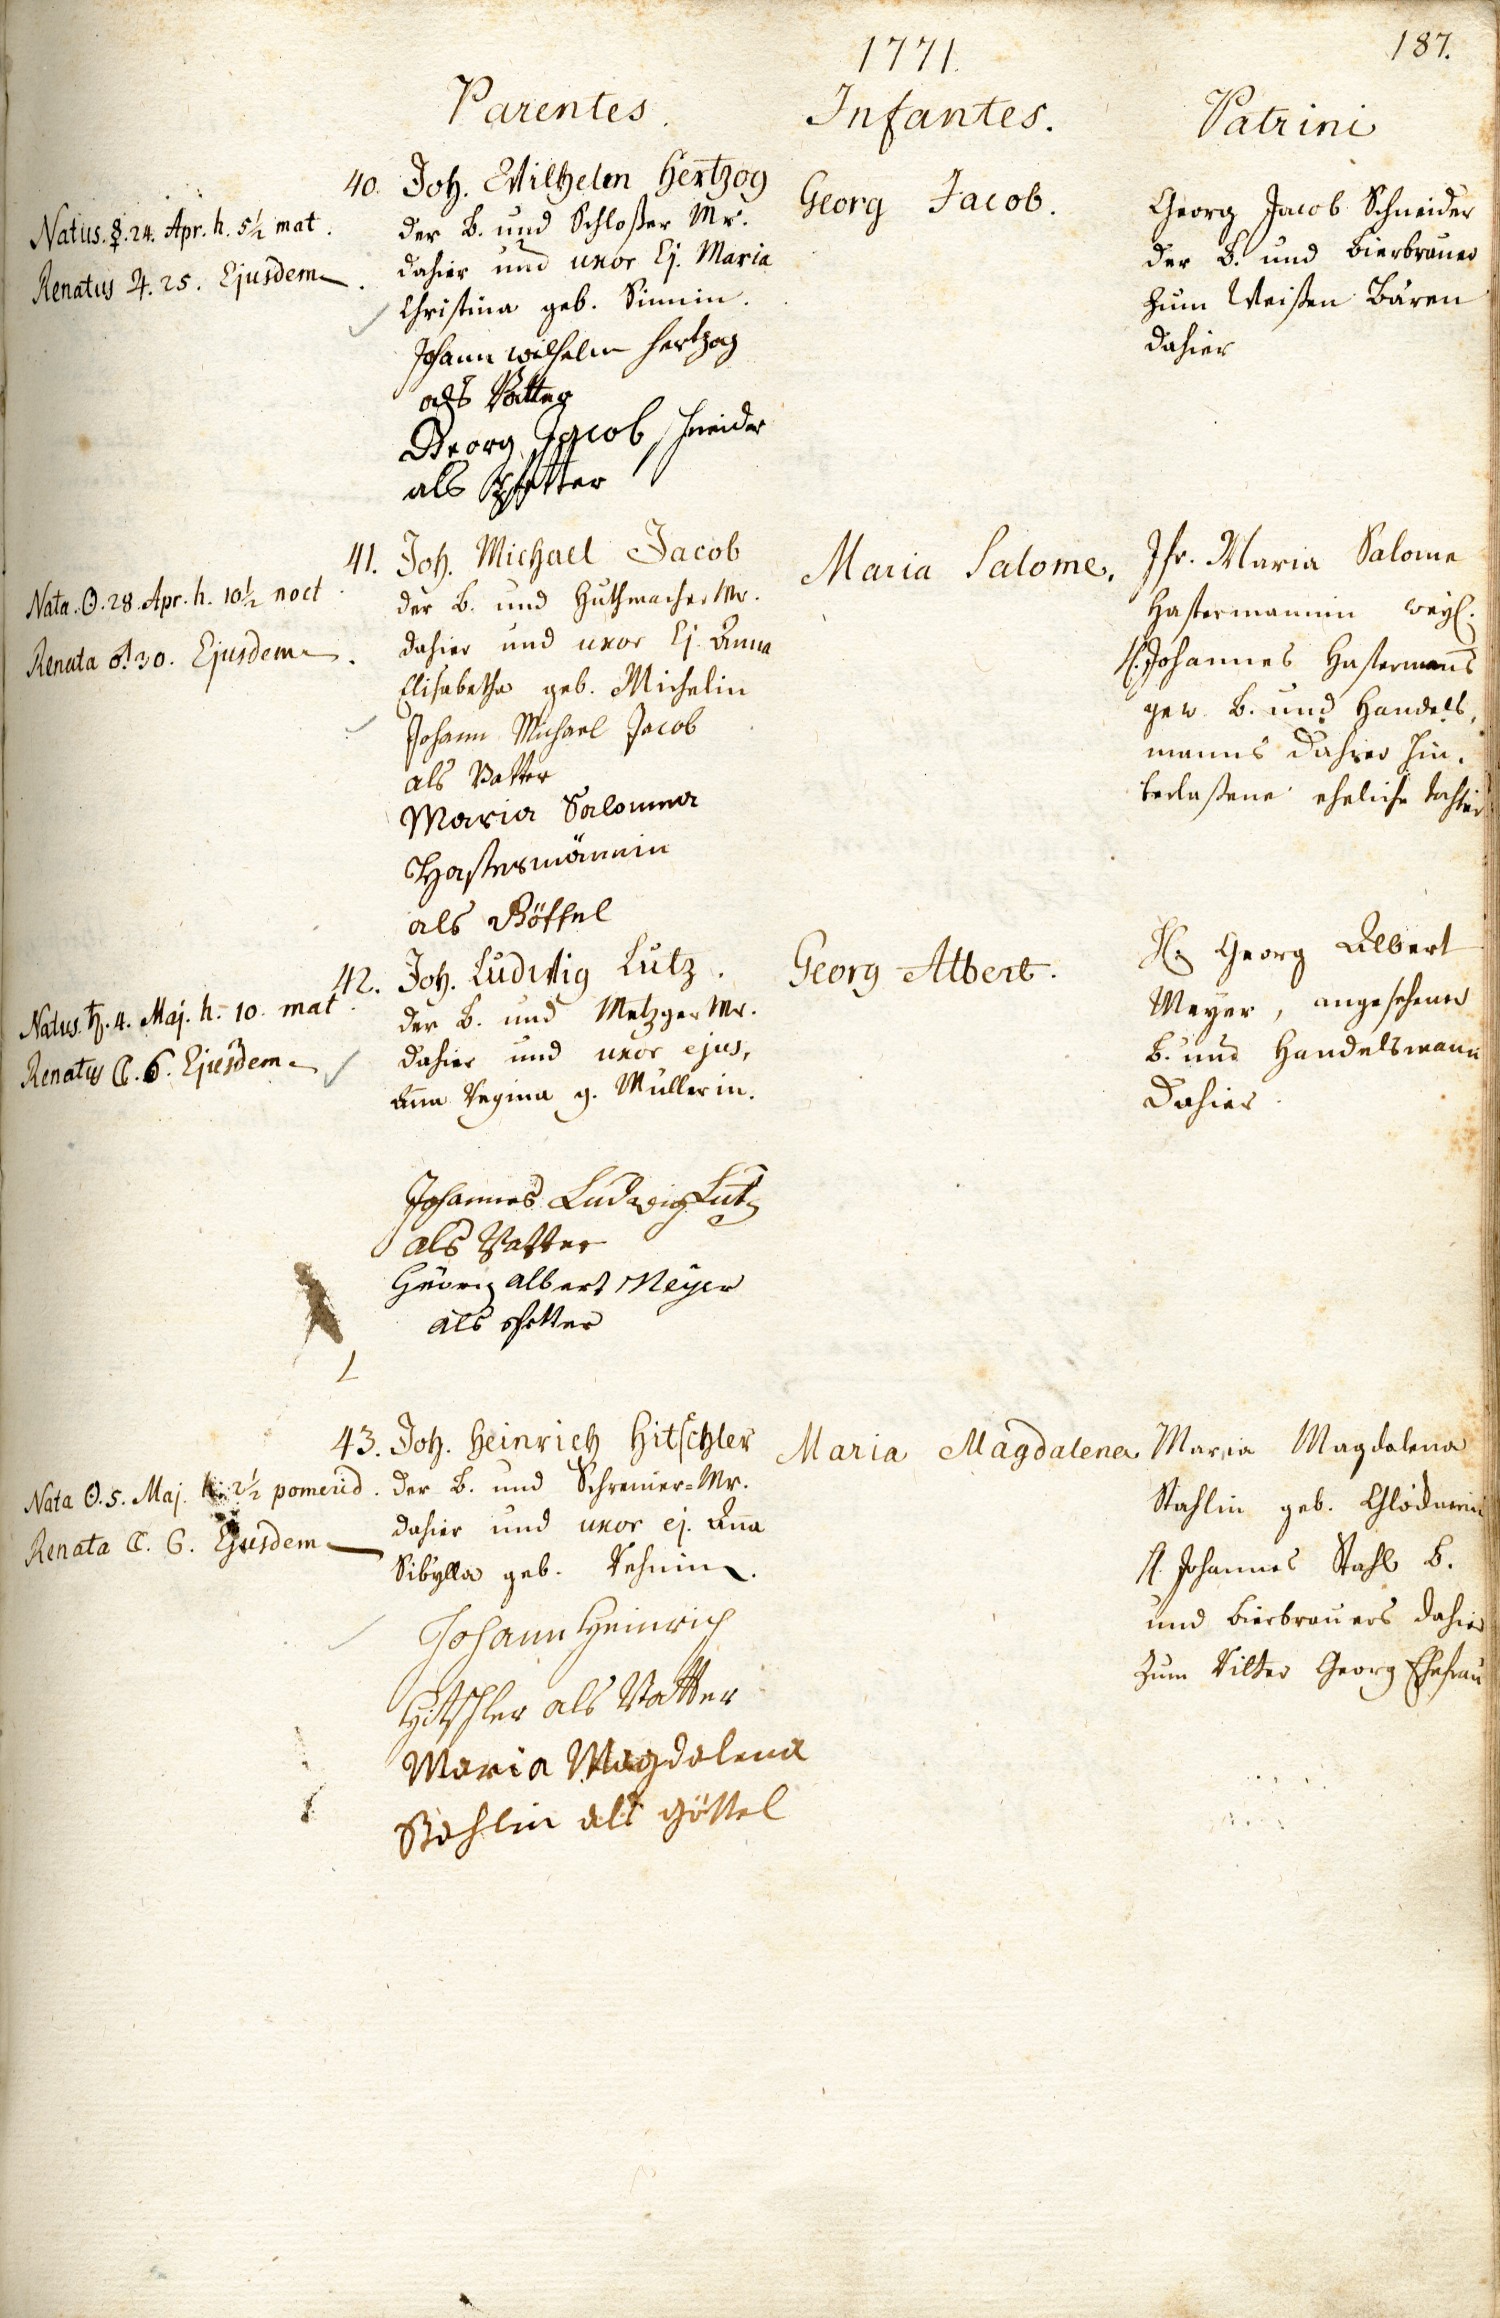 1771.
187.
Parentes.
Infantes.
Patrini
Natus. ☿. 24. Apr. h. 5½ mat.
Renatus ♃. 25. Ejusdem.
40. Joh. Wilhelm Hertzog
der B. und Schloßer Mr.
dahier und uxor Ej. Maria
Christina geb. Simmin.
Johann wilhelm hertzog
als Vatter
Georg Jacob schneider
als Pfetter
Georg Jacob.
Georg Jacob Schneider
der B. und Bierbrauer
zum Weißen Bären
dahier
Nata. ☉. 28. Apr. h. 10½ noct.
Renata ♂. 30. Ejusdem.
41. Joh. Michael Jacob
der B. und Huthmacher Mr.
dahier und uxor Ej. Anna
Elisabetha geb. Michelin
Johann Michael Jacob
als Vatter
Maria Salomea
Hastermännin
als Göttel
Maria Salome.
Jfr. Maria Salome
Hastermannin weyl.
H. Johannes Hastermanns
gew. B. und Handels,
manns dahier hin,
terlaßene eheliche tochter
Natus. ♄. 4. Maj. h. 10. mat.
Renatus ☾. 6. Ejusdem
42. Joh. Ludwig Lutz.
der B. und Metzger Mr.
dahier und uxor ejus,
Anna Regina g. Müllerin.
Johannes Ludwig Lutz
als Vatter
Georg albert Meyer
als pfetter
Georg Albert.
H. Georg Albert
Meyer, angesehener
B. und Handelsmann
dahier.
Nata ☉. 5. Maj. h. 2½ pomerid.
Renata ☾. 6. Ejusdem
43. Joh. Heinrich Hitschler
der B. und Schreiner=Mr.
dahier und uxor ej. Anna
Sibylla geb.
Johann Heinrich
Hitschler als Vatter
Maria Magdalena
Stahlin als göttel
Maria Magdalena
Maria Magdalena
Stahlin geb.
H. Johannes Stahl B.
und Bierbrauers dahier
zum Ritter Georg Ehefrau